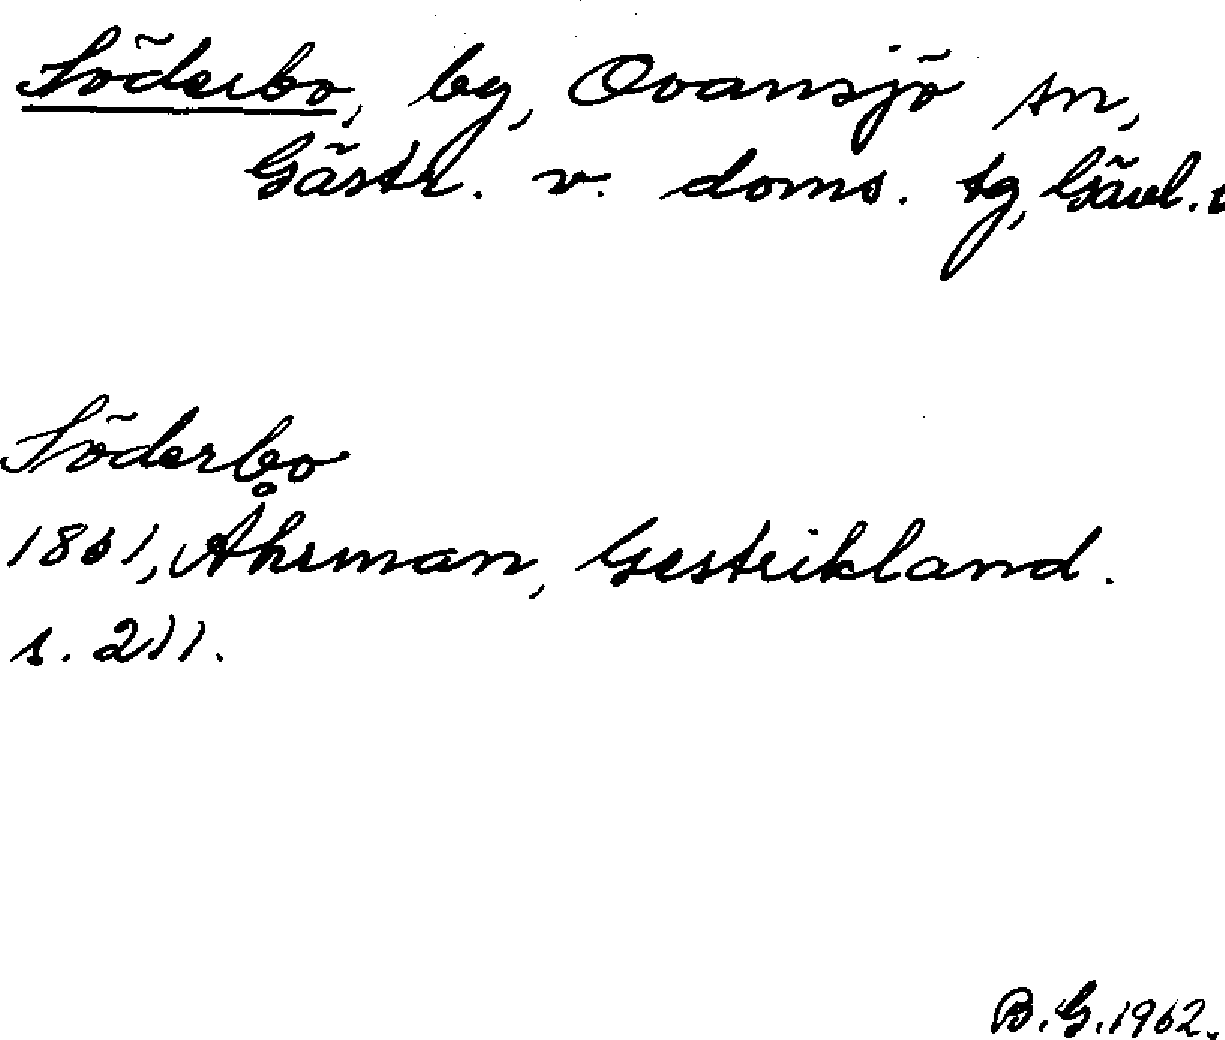 Söderbo, by, Ovansjö sn,
Gästr. v. doms. tg, Gävl. l
Söderbo
1861, Åhrman, Gestrikland.
s. 211.
B.G. 1962.